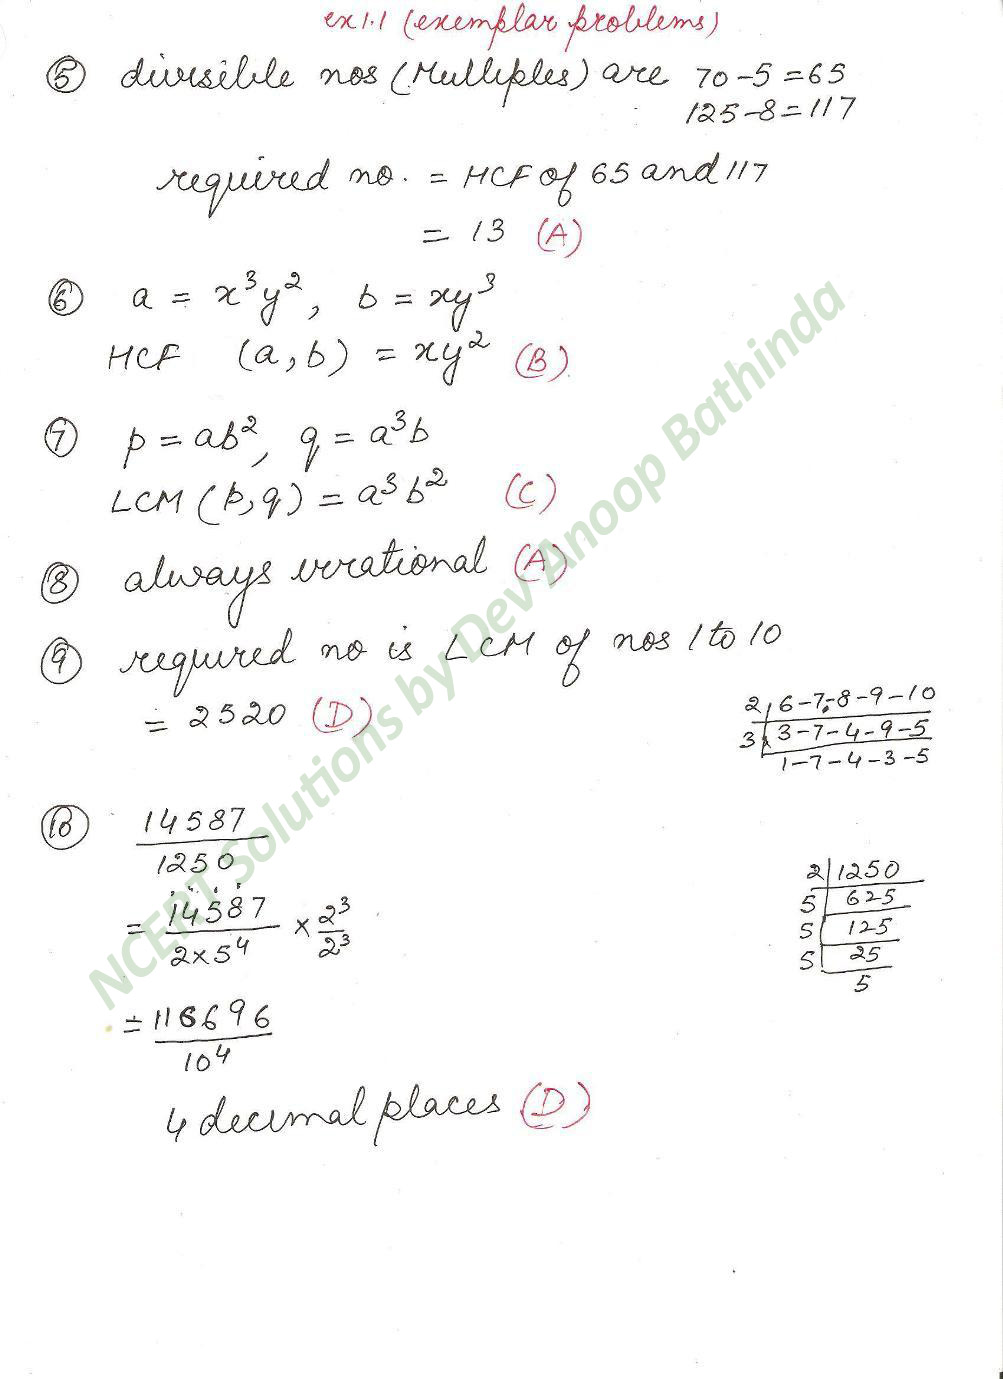 ex 1.1 (exemplar problems)
⑤ divisible nos (Multiples) are 70-5=65
125-8=117
required no. = HCF of 65 and 117
= 13 (A)
⑥ a = x³y², b = xy³
HCF (a,b) = xy² (B)
⑦ p = ab², q = a³b
LCM (p,q) = a³b² (C)
⑧ always irrational (A)
⑨ required no is LCM of nos 1 to 10
= 2520 (D)
2 | 6-7-8-9-10
3 | 3-7-4-9-5
1-7-4-3-5
⑩ 14587
1250
= 14587 / 2×5⁴ × 2³/2³
= 116696
10⁴
4 decimal places (D)
2 | 1250
5 | 625
5 | 125
5 | 25
5
NCERT Solutions by Dev Anoop Bathinda